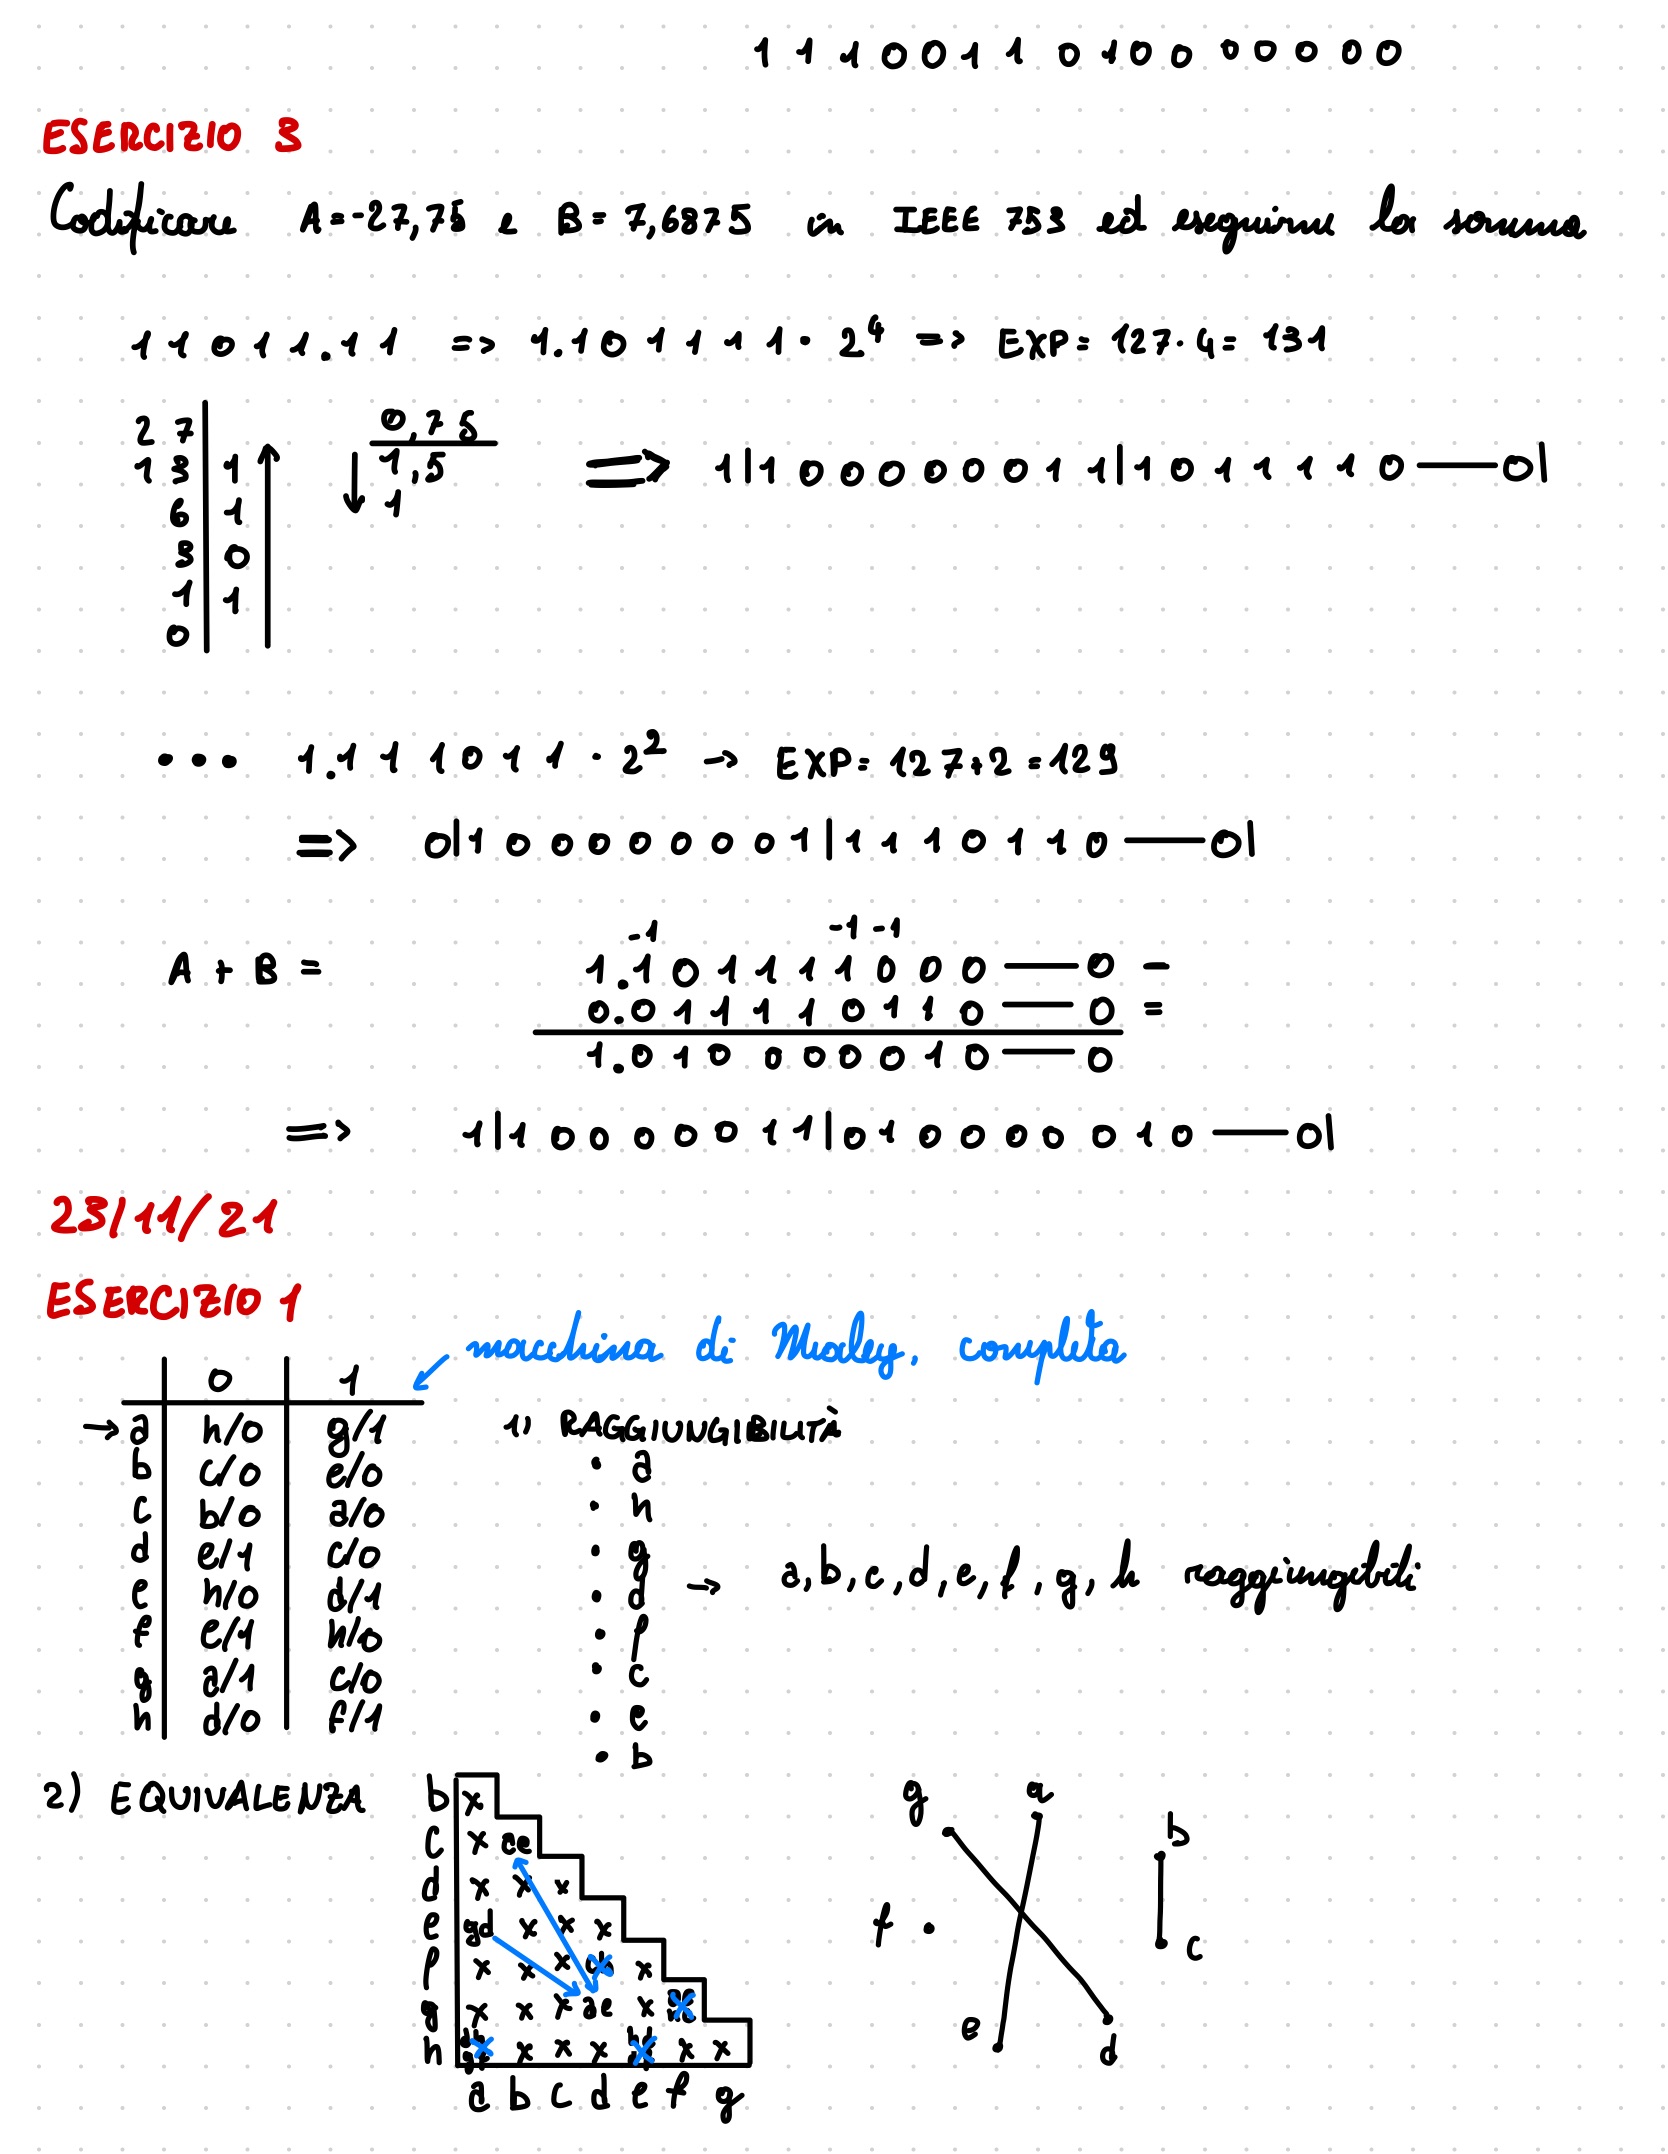 1 1 1 0 0 1 1 0 1 0 0 0 0 0 0 0
ESERCIZIO 3
Codificare A=-27,75 e B= 7,6875 in IEEE 753 ed eseguirne la somma
1 1 0 1 1.1 1 => 1.1 0 1 1 1 1 · 2⁴ => EXP= 127· 4= 131
2 7
1 3 1
6 1
3 0
1 1
0
0,75
1,5
1
=> 1|1 0 0 0 0 0 0 1 1|1 0 1 1 1 1 0 —— 0|
... 1.1 1 1 0 1 1 · 2² -> EXP= 127+2 =129
=> 0|1 0 0 0 0 0 0 0 1|1 1 1 0 1 1 0 —— 0|
-1 -1 -1
A + B = 1.1 0 1 1 1 1 0 0 0 —— 0 -
0.0 1 1 1 1 0 1 1 0 —— 0 =
1.0 1 0 0 0 0 0 1 0 —— 0
=> 1|1 0 0 0 0 0 1 1|0 1 0 0 0 0 0 1 0 —— 0|
23/11/21
ESERCIZIO 1
macchina di Mealey, completa
0 1
-> a h/0 g/1
b c/0 e/0
c b/0 a/0
d e/1 c/0
e h/0 d/1
f e/1 h/0
g a/1 c/0
h d/0 f/1
1) RAGGIUNGIBILITÀ
• a
• h
• g
• d
• f
• c
• e
• b
-> a, b, c, d, e, f, g, h raggiungibili
2) EQUIVALENZA
b x
c x ae
d x x x
e gd x x x
f x x x x
g x x x ae x
h x x x x x
a b c d e f g
g a
b
f .
c
e d